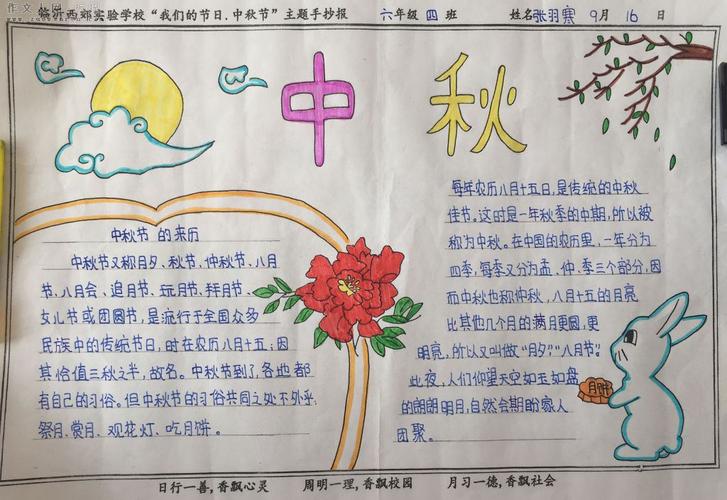 临沂西郊实验学校“我们的节日.中秋节”主题手抄报 六年级 四 班 姓名 张羽骞 9月 16 日
中秋
中秋节 的来历
中秋节又称月夕、秋节、仲秋节、八月
节、八月会、追月节、玩月节、拜月节、
女儿节或团圆节，是流行于全国众多
民族中的传统节日，时在农历八月十五；因
其恰值三秋之半，故名。中秋节到了，各地都
有自己的习俗。但中秋节的习俗共同之处不外乎：
祭月、赏月、观花灯、吃月饼。
每年农历八月十五日，是传统的中秋
佳节。这时是一年秋季的中期，所以被
称为中秋。在中国的农历里，一年分为
四季，每季又分为孟、仲、季三个部分，因
而中秋也称仲秋，八月十五的月亮
比其他几个月的满月更圆，更
明亮，所以又叫做“月夕”，“八月节”。
此夜，人们仰望天空如玉如盘
的朗朗明月，自然会期盼家人
团聚。
月饼
日行一善，香飘心灵 周明一理，香飘校园 月习一德，香飘社会